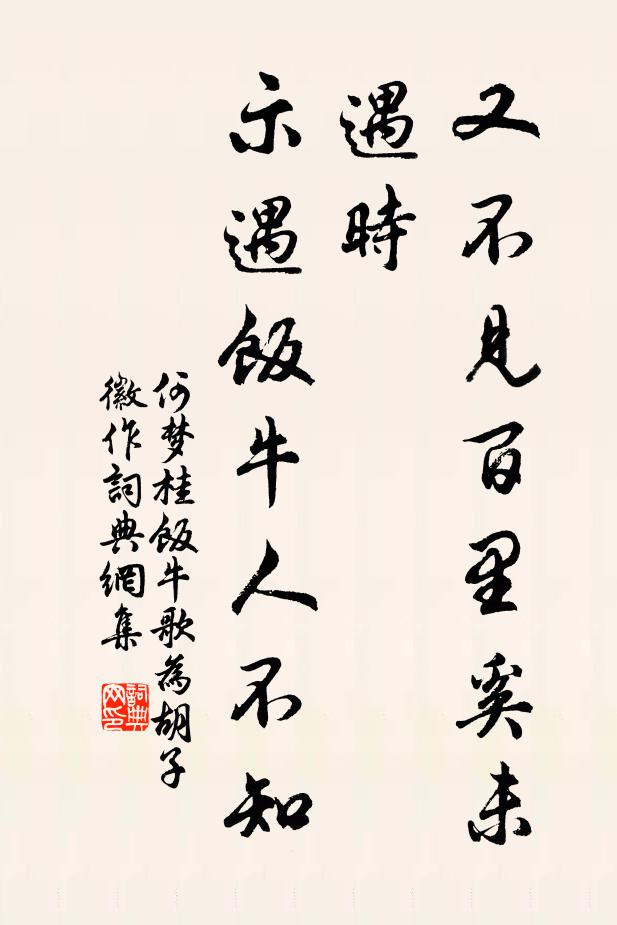 又不見百里奚未
遇時
示遇飯牛人不知
何梦桂飯牛歌為胡子
徽作詞典網集
詞典
网印